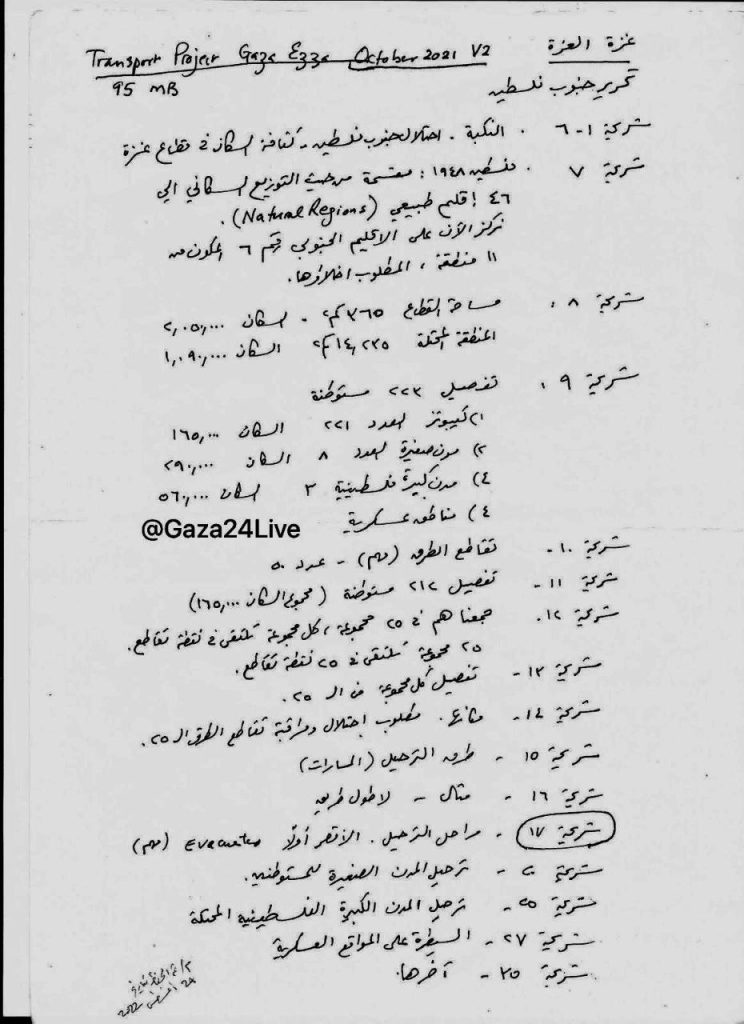 غزة العزة
Transport Project Gaza Ezza October 2021 V2
95 MB
تحرير جنوب فلسطين
شريحة ١-٦ . النكبة . احتلال جنوب فلسطين - كثافة السكان في قطاع غزة
شريحة ٧ . فلسطين ١٩٤٨ : مقسمة من حيث التوزيع السكاني الي
٤٦ إقليم طبيعي (Natural Regions) .
نركز الآن على الاقليم الجنوبي رقم ٦ المكون من
١١ منطقة ، المطلوب اخلاؤها .
شريحة ٨ : مساحة القطاع ٣٦٥ كم٢ . السكان ٢,٠٥٠,٠٠٠
المنطقة المحتلة ١٤,٢٣٥ كم٢ السكان ١,٠٩٠,٠٠٠
شريحة ٩ : تفصيل ٢٢٣ مستوطنة
١) كيبوتز العدد ٢٢١ السكان ١٦٥,٠٠٠
٢) مدن صغيرة العدد ٨ السكان ٢٩٠,٠٠٠
٤) مدن كبيرة فلسطينية ٣ السكان ٥٦٠,٠٠٠
٤) مناطق عسكرية
@Gaza24Live
شريحة ١٠ - تقاطع الطرق (مهم) - عدد ٥٠
شريحة ١١ - تفصيل ٢١٢ مستوطنة (مجموع السكان ١٦٥,٠٠٠)
شريحة ١٢ . جمعناهم في ٢٥ مجموعة ، كل مجموعة تلتقي في نقطة تقاطع .
٢٥ مجموعة تلتقي في ٢٥ نقطة تقاطع .
شريحة ١٣ - تفصيل كل مجموعة من الـ ٢٥ .
شريحة ١٤ - مكانها . مطلوب احتلال ومراقبة تقاطع الطرق الـ ٢٥ .
شريحة ١٥ - طرق الترحيل (المسارات)
شريحة ١٦ - مثال - لاطول طريق
شريحة ١٧ - مراحل الترحيل . الأقصر أولاً Evacuate (مهم)
شريحة ٢٠ - ترحيل المدن الصغيرة للمستوطنين .
شريحة ٢٥ - ترحيل المدن الكبيرة الفلسطينية المحتلة
شريحة ٢٧ - السيطرة على المواقع العسكرية
شريحة ٣٥ - آخرها .